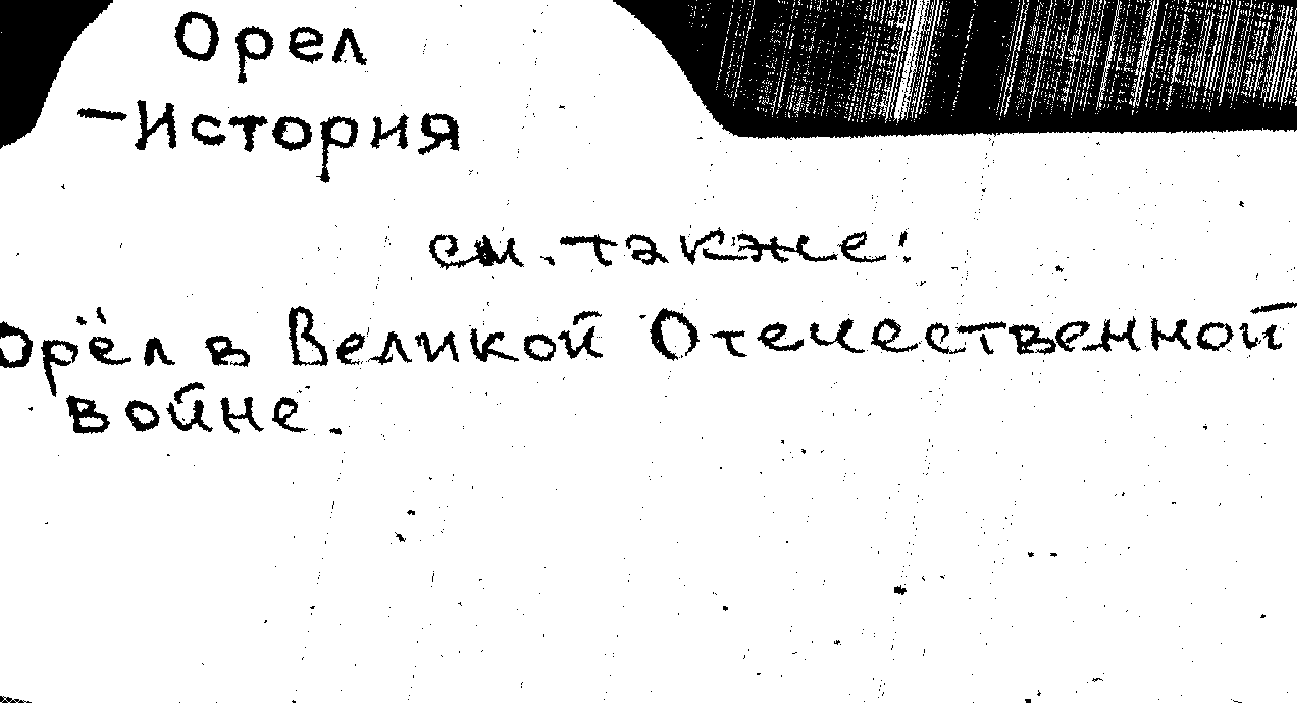 Орел
-История
см. также:
Орёл в Великой Отечественной
войне.